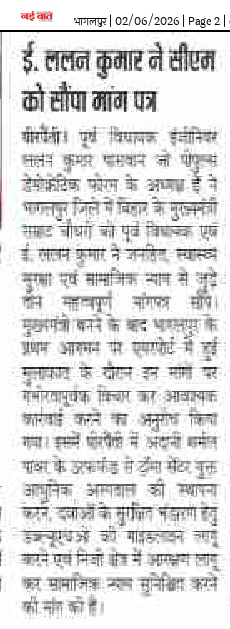 नई बात
भागलपुर | 02/06/2026 | Page 2 |
ई. ललन कुमार ने सीएम
को सौंपा मांग पत्र
पीरपैंती। पूर्व विधायक इंजीनियर
ललन कुमार पासवान जो पीपुल्स
डेमोक्रेटिक फोरम के अध्यक्ष हैं ने
भागलपुर जिले में बिहार के मुख्यमंत्री
सम्राट चौधरी को पूर्व विधायक एवं
ई. ललन कुमार ने जनहित, स्वास्थ्य
सुरक्षा एवं सामाजिक न्याय से जुड़े
तीन महत्वपूर्ण मांगपत्र सौंपे।
मुख्यमंत्री बनने के बाद भागलपुर के
प्रथम आगमन पर एयरपोर्ट में हुई
मुलाकात के दौरान इन मांगों पर
गंभीरतापूर्वक विचार कर आवश्यक
कार्रवाई करने का अनुरोध किया
गया। इसमें पीरपैंती में अदानी थर्मल
पावर के सीएसआर फंड से ट्रॉमा सेंटर युक्त
आधुनिक अस्पताल की स्थापना
करने, दवाओं के सुरक्षित भंडारण हेतु
डब्ल्यूएचओ की गाइडलाइन लागू
करने एवं निजी क्षेत्र में आरक्षण लागू
कर सामाजिक न्याय सुनिश्चित करने
की मांग की है।